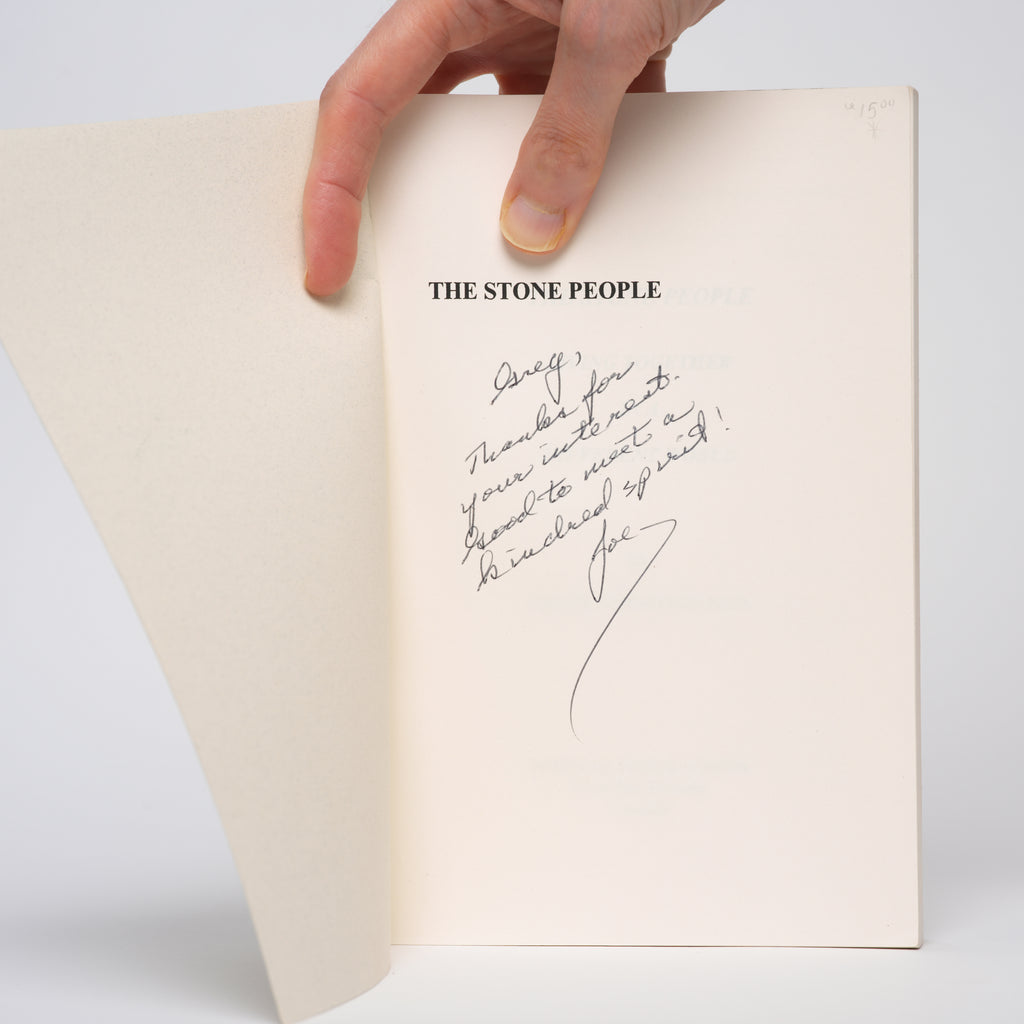 15.00
THE STONE PEOPLE
Greg,
Thanks for
your interest.
Good to meet a
kindred spirit!
Joe